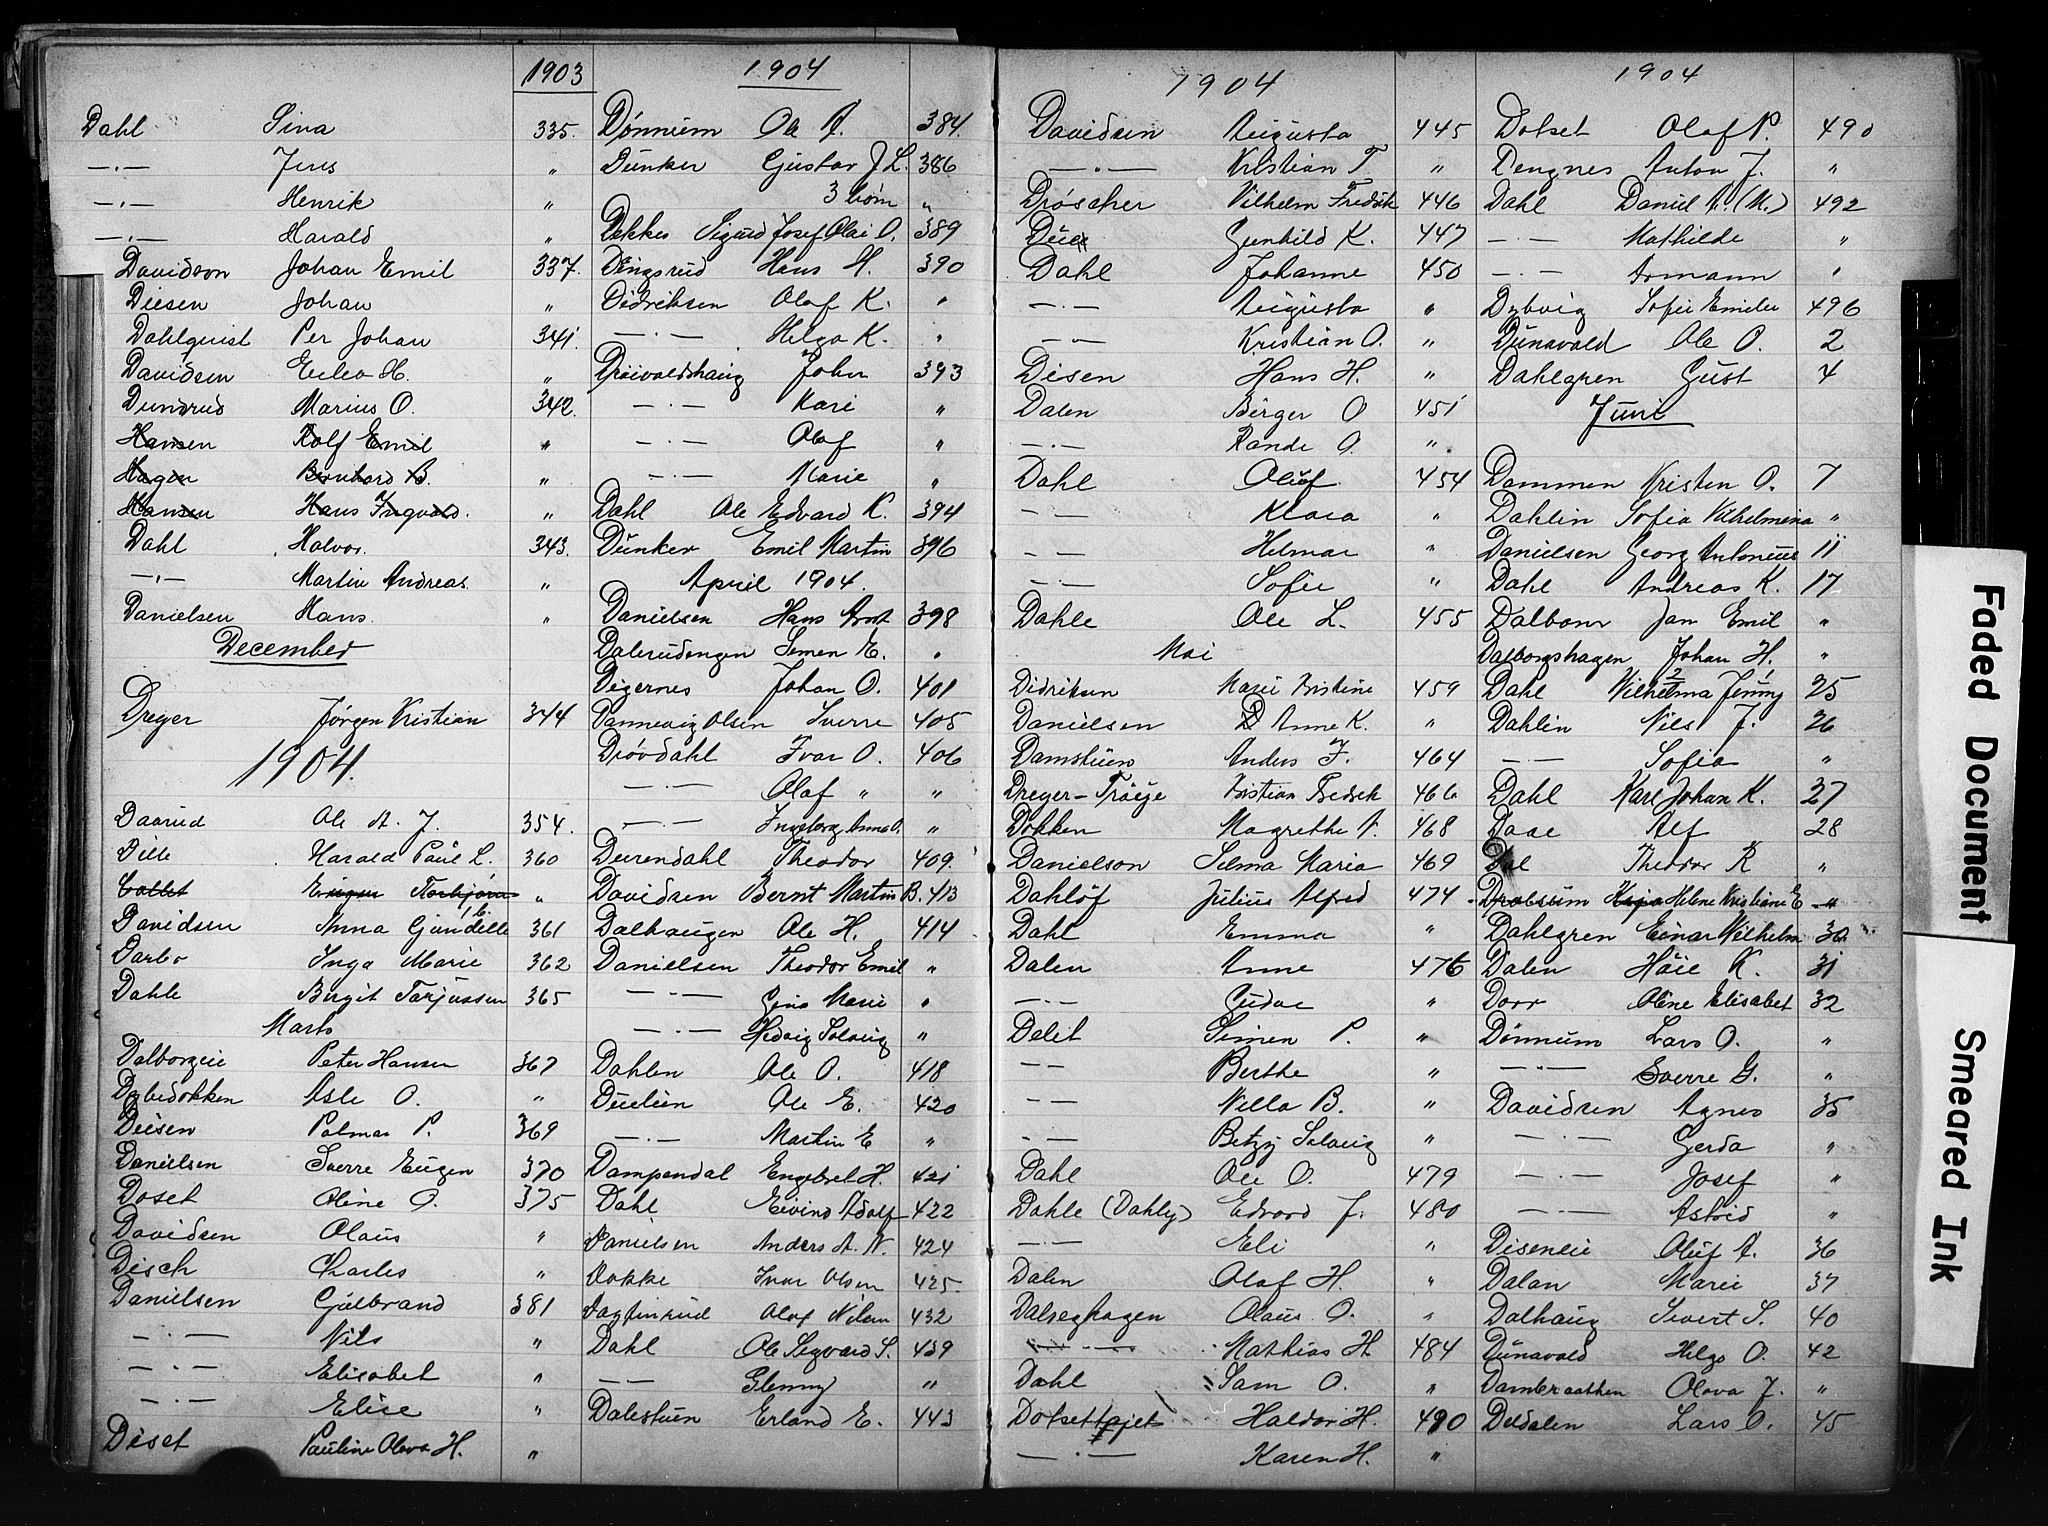 1903
Dahl Sina 335.
—·— Jens "
—·— Henrik "
—·— Harald "
Davidson Johan Emil 337.
Diesen Johan "
Dahlquist Per Johan 341.
Davidsen Eilev H. "
Dundrud Marius O. 342.
Hansen Rolf Emil "
Hagen Bernhard B. "
Hansen Hans Ingvald. "
Dahl Halvor. 343.
—·— Martin Andreas. "
Danielsen Hans. "
December
Dreyer Jörgen Kristian 344
1904.
Daarud Ole A. J. 354.
Dille Harald Paul L. 360
Collet Eugen Torbjørn "
Davidsen Anna Gundelle 361
Darbo Inga Marie 362
Dahle Birgit Tarjussen 365
Marts
Dalborgeie Peter Hansen 367
Dybedokken Asle O. "
Diesen Palmar P. 369
Danielsen Sverre Eugen 370
Doset Oline O. 375
Davidsen Olaus "
Disch Charles "
Danielsen Gulbrand 381
—·— Nils "
—·— Elisabet "
—·— Elise "
Diset Pauline Olava H. "
1904
Dønnum Ole A. 384.
Dunker Gustav J. L. 386
3 børn "
Dekkes Sigurd Josef Olai O. 389
Dengsrud Hans H. 390
Didriksen Olaf K. "
—·— Helga K. "
Drøivoldshaug John 393
—·— Kari "
—·— Olaf "
—·— Marie "
Dahl Ole Edvard K. 394
Dunker Emil Martin 396
April 1904.
Danielsen Hans Arnt 398
Dalerudengen Simen E. "
Digernes Johan O. 401
Dannevig Olsen Sverre 405
Drövdahl Ivar O. 406
—·— Olaf " "
—·— Ingeborg Anna O. "
Durendahl Theodor 409.
Davidsen Bernt Martin B. 413
Dalhaugen Ole H. 414
Danielsen Theodor Emil "
—·— Gina Marie "
—·— Hedvig Solveig "
Dahlen Ole O. 418
Duelien Ole E. 420
—·— Martin E "
Dampendal Engebret H. 421
Dahl Eivind Adolf 422
Danielsen Anders A. N. 424
Dokke Ivar Olsen 425.
Dagfinrud Olaf Nilsen 432
Dahl Ole Sigvard S. 439
—— Glenny "
Dalestuen Erland E. 443
1904
Davidsen Augusta 445
—·— Kristian T "
Dröscher Vilhelm Fredrik 446
Due Gunhild K. 447
Dahl Johanne 450
—·— Augusta "
—— Kristian O. "
Disen Hans H. "
Dalen Birger O 451
—·— Rande O. "
Dahl Oluf 454
—— Klara "
—— Helmar "
—·— Sofie "
Dahle Ole L. 455
Mai
Didriksen Marie Kristine 459
Danielsen D Anne K. "
Damstuen Anders J. 464
Dreyer-Trøije Kristian Fredrik 466
Dokken Magrethe A. 468
Danielson Selma Maria 469
Dahlöf Julius Alfred 474
Dahl Emma "
Dalen Anne 476
—·— Gudve "
Delet Simen P. "
—— Berthe "
—— Nella B. "
—·— Betzy Solveig "
Dahl Ole O. 479
Dahle (Dahly) Edvard J. 480
—·— Eli "
Dalen Olaf H. "
Dalseghagen Olaus O. "
—·— Mathias H. 484
Dahl Sam O. "
Dotsettajet Haldor H. 490
—·— Karen H. "
1904
Dotset Olaf P. 490
Dengnes Anton J. "
Dahl Daniel A. (M.) 492
—·— Mathilde "
—·— Armann "
Dybvig Sofie Emilie 496
Dunavold Ole O. 2
Dahlgren Gust 4
Juni
Dammen Kristen O. 7
Dahlin Sofia Vilhelmina "
Danielsen Georg Antonius 11
Dahl Andreas K. 17
Dalbom Jan Emil "
Dalborgshagen Johan H. "
Dahl Vilhelma Jenny 25
Dahlin Nils J. 26
—·— Sofia "
Dahl Karl Johan K. 27
Daae Alf 28
Dal Theodor K "
Drolsum Kaja Helene Kristiane E "
Dahlgren Einar Wilhelm 30
Dalen Håie K. 31
Dorr Oline Elisabet 32
Dønnum Lars O. "
—·— Sverre G. "
Davidsen Agnes 35
—·— Gerda "
—·— Josef "
—·— Astrid "
Diseneie Oluf A. 36
Dalan Marie 37
Dalhaug Sivert S. 40
Dunavold Helge O. 42
Dambraathen Olava J. "
Deldalen Lars O. 45
Faded Document
Smeared Ink